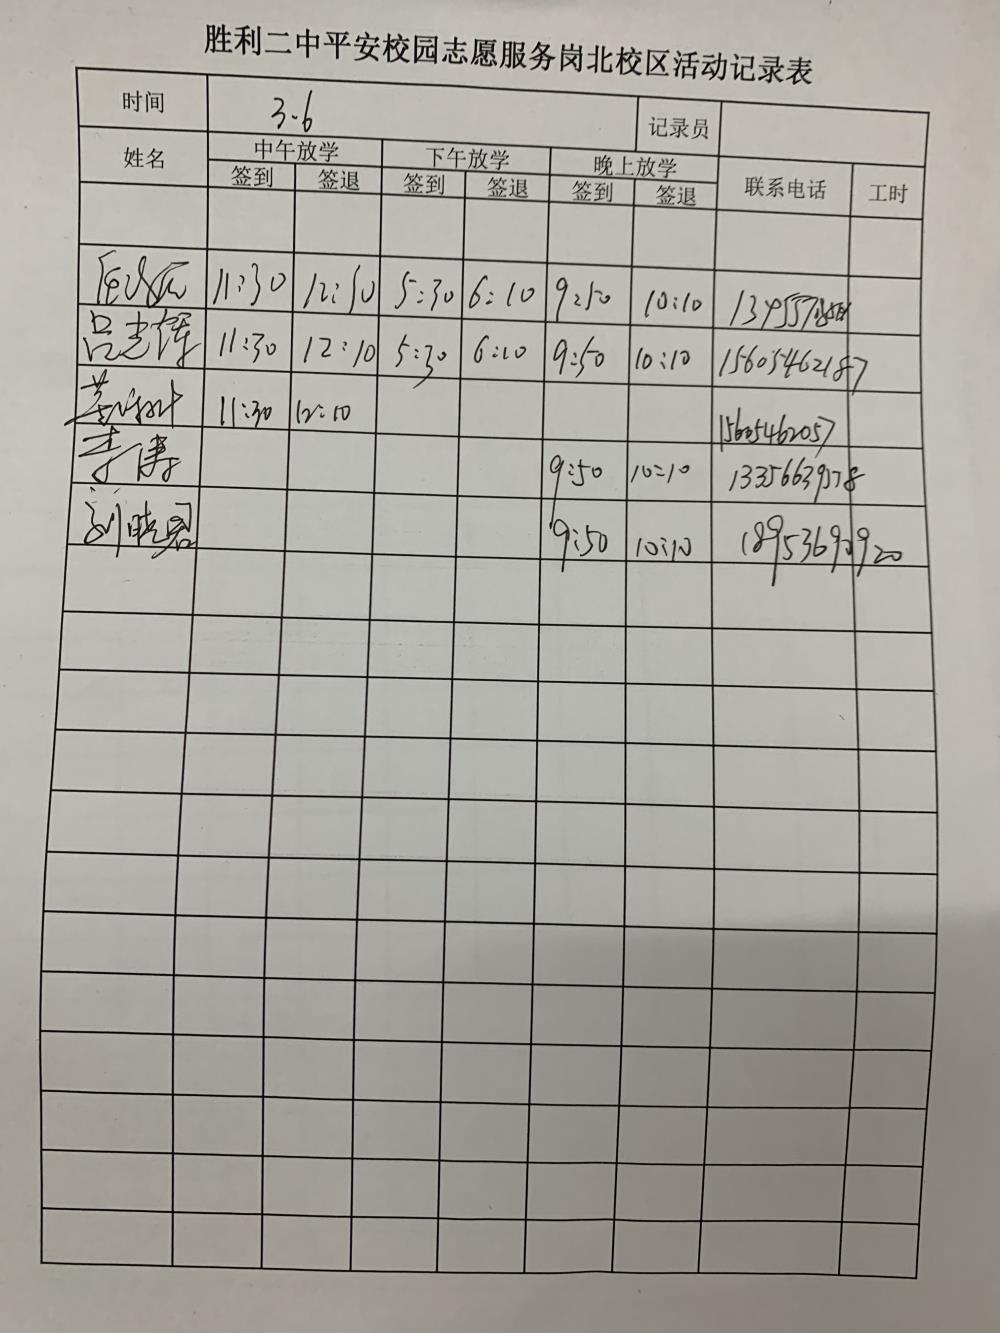 胜利二中平安校园志愿服务岗北校区活动记录表
时间 3.6 记录员
姓名 中午放学 下午放学 晚上放学 联系电话 工时
签到 签退 签到 签退 签到 签退
11:30 12:50 5:30 6:10 9:50 10:10
吕志锋 11:30 12:10 5:30 6:10 9:50 10:10 15605462187
11:30 12:10 15605462057
李涛 9:50 10:10 13356639578
刘晓君 9:50 10:10